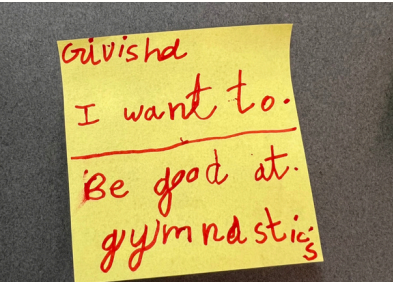 Givisha
I want to.
Be good at.
gymnastics